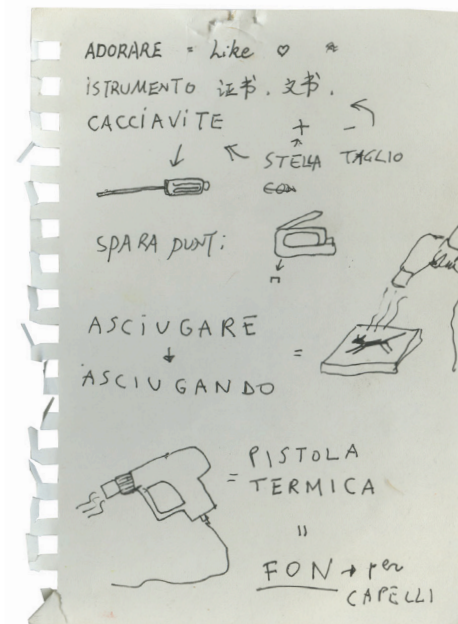 ADORARE = Like ♡
iSTRUMENTO 证书. 文书.
CACCIAViTE + -
STELLA TAGLIO
SPARA PUNTi
ASCiUGARE
↓ =
ASCIUGANDO
= PISTOLA
TERMICA
"
FON → per
CAPELLI